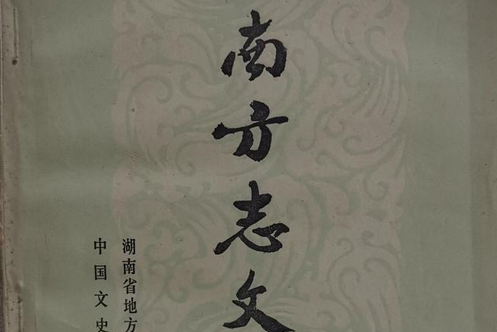 南方志文
湖南省地方
中国文史